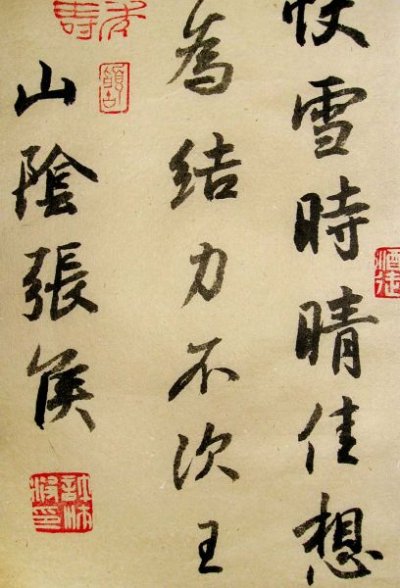 快雪時晴佳想
為結力不次王
山陰張侯
酒徒